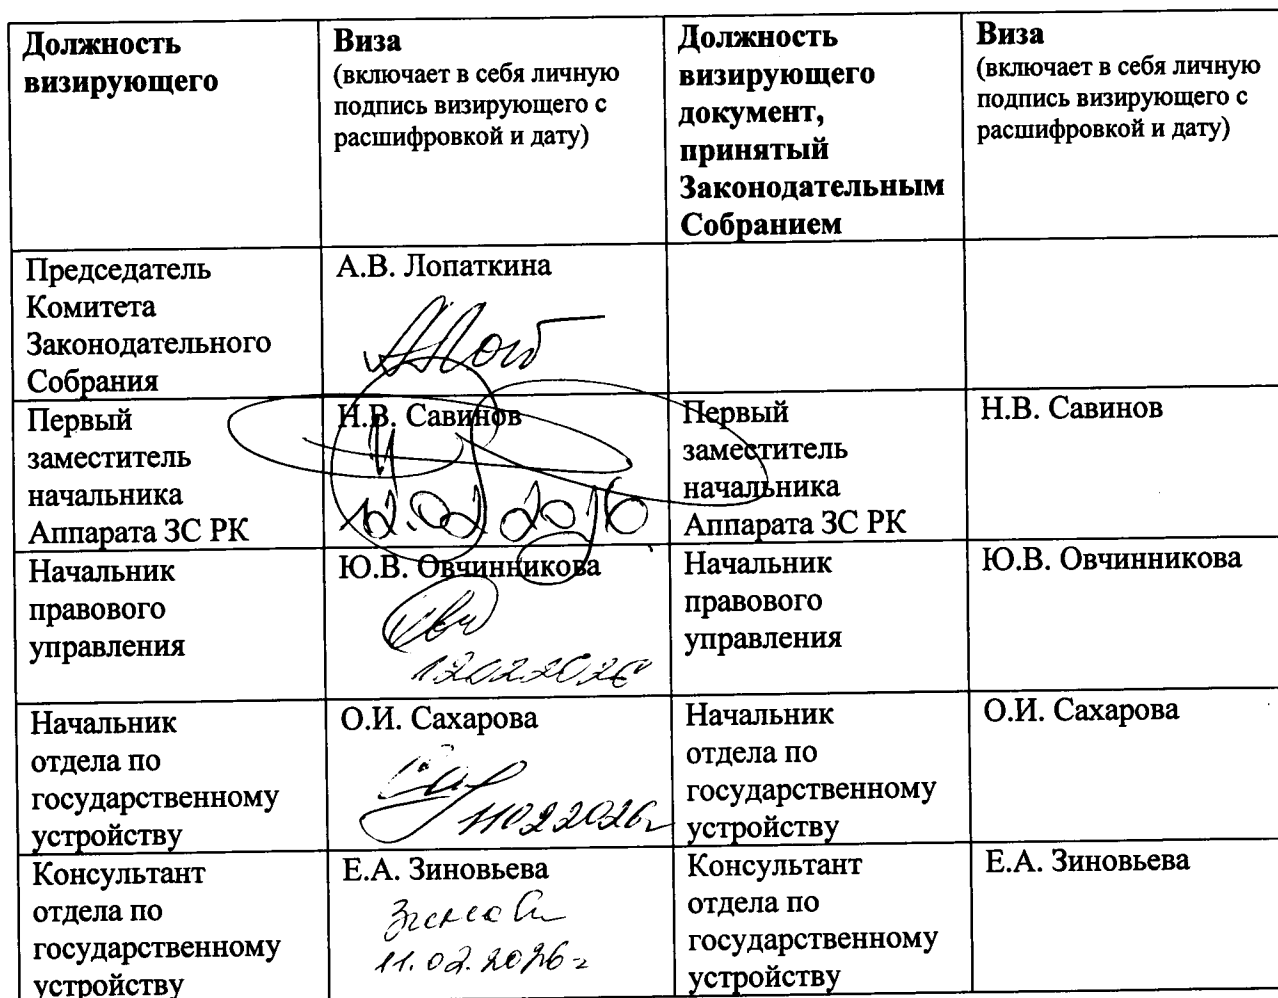 Должность
визирующего
Виза
(включает в себя личную
подпись визирующего с
расшифровкой и дату)
Должность
визирующего
документ,
принятый
Законодательным
Собранием
Виза
(включает в себя личную
подпись визирующего с
расшифровкой и дату)
Председатель
Комитета
Законодательного
Собрания
А.В. Лопаткина
Первый
заместитель
начальника
Аппарата ЗС РК
Н.В. Савинов
12.02.2026
Первый
заместитель
начальника
Аппарата ЗС РК
Н.В. Савинов
Начальник
правового
управления
Ю.В. Овчинникова
12022026
Начальник
правового
управления
Ю.В. Овчинникова
Начальник
отдела по
государственному
устройству
О.И. Сахарова
11022026г
Начальник
отдела по
государственному
устройству
О.И. Сахарова
Консультант
отдела по
государственному
устройству
Е.А. Зиновьева
11.02.2026г
Консультант
отдела по
государственному
устройству
Е.А. Зиновьева